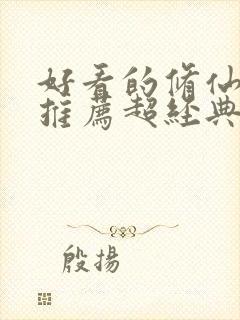 好看的脩仙
推薦超經典
殷揚